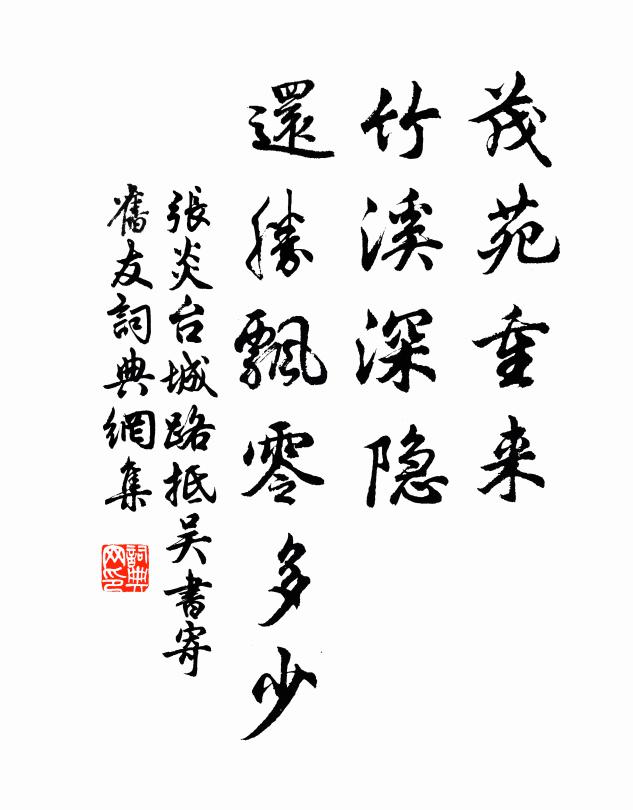 茂苑重来
竹溪深隐
還勝飄零多少
張炎台城路抵吴書寄
舊友詞典網集
詞典网印